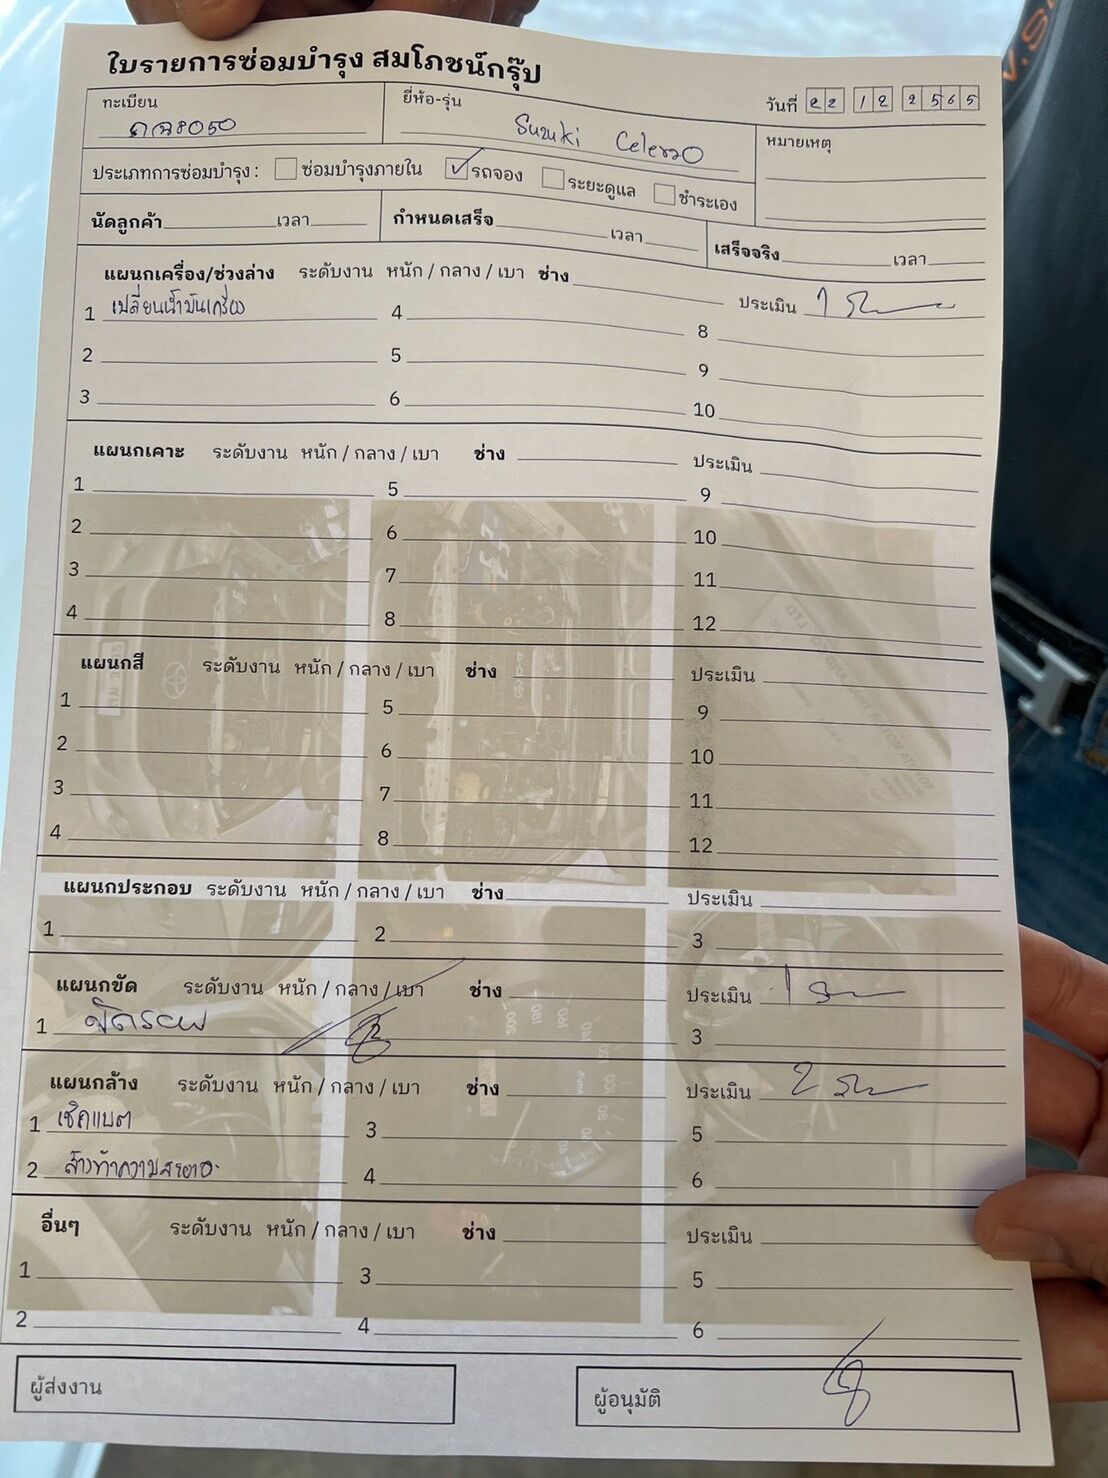 ใบรายการซ่อมบำรุง สมโภชน์กรุ๊ป
วันที่ 22 12 2565
ทะเบียน 8050
ยี่ห้อ-รุ่น Suzuki Celerio
หมายเหตุ
ประเภทการซ่อมบำรุง : ซ่อมบำรุงภายใน รถจอง ระยะดูแล ชำระเอง
นัดลูกค้า เวลา กำหนดเสร็จ เวลา เสร็จจริง เวลา
แผนกเครื่อง/ช่วงล่าง ระดับงาน หนัก / กลาง / เบา ช่าง ประเมิน 1
1 เปลี่ยนน้ำมันเครื่อง 4 8
2 5 9
3 6 10
แผนกเคาะ ระดับงาน หนัก / กลาง / เบา ช่าง ประเมิน
1 5 9
2 6 10
3 7 11
4 8 12
แผนกสี ระดับงาน หนัก / กลาง / เบา ช่าง ประเมิน
1 5 9
2 6 10
3 7 11
4 8 12
แผนกประกอบ ระดับงาน หนัก / กลาง / เบา ช่าง ประเมิน
1 2 3
แผนกขัด ระดับงาน หนัก / กลาง / เบา ช่าง ประเมิน 1
1 2 3
แผนกล้าง ระดับงาน หนัก / กลาง / เบา ช่าง ประเมิน 2
1 เช็คแบต 3 5
2 ล้างทำความสะอาด 4 6
อื่นๆ ระดับงาน หนัก / กลาง / เบา ช่าง ประเมิน
1 3 5
2 4 6
ผู้ส่งงาน ผู้อนุมัติ